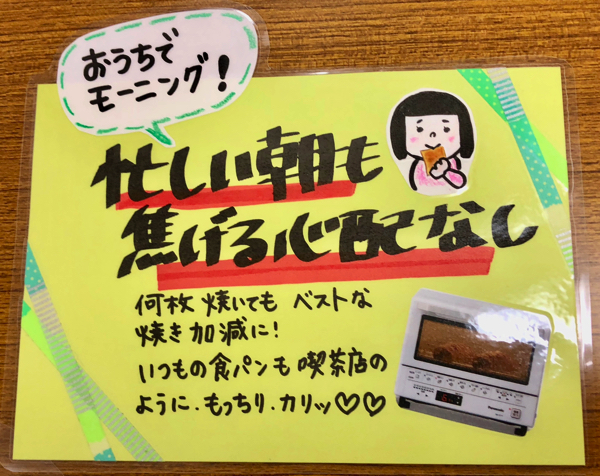 おうちで
モーニング!
忙しい朝も
焦げる心配なし
何枚焼いても ベストな
焼き加減に!
いつもの食パンも喫茶店の
ように.もっちり.カリッ♡♡
Panasonic